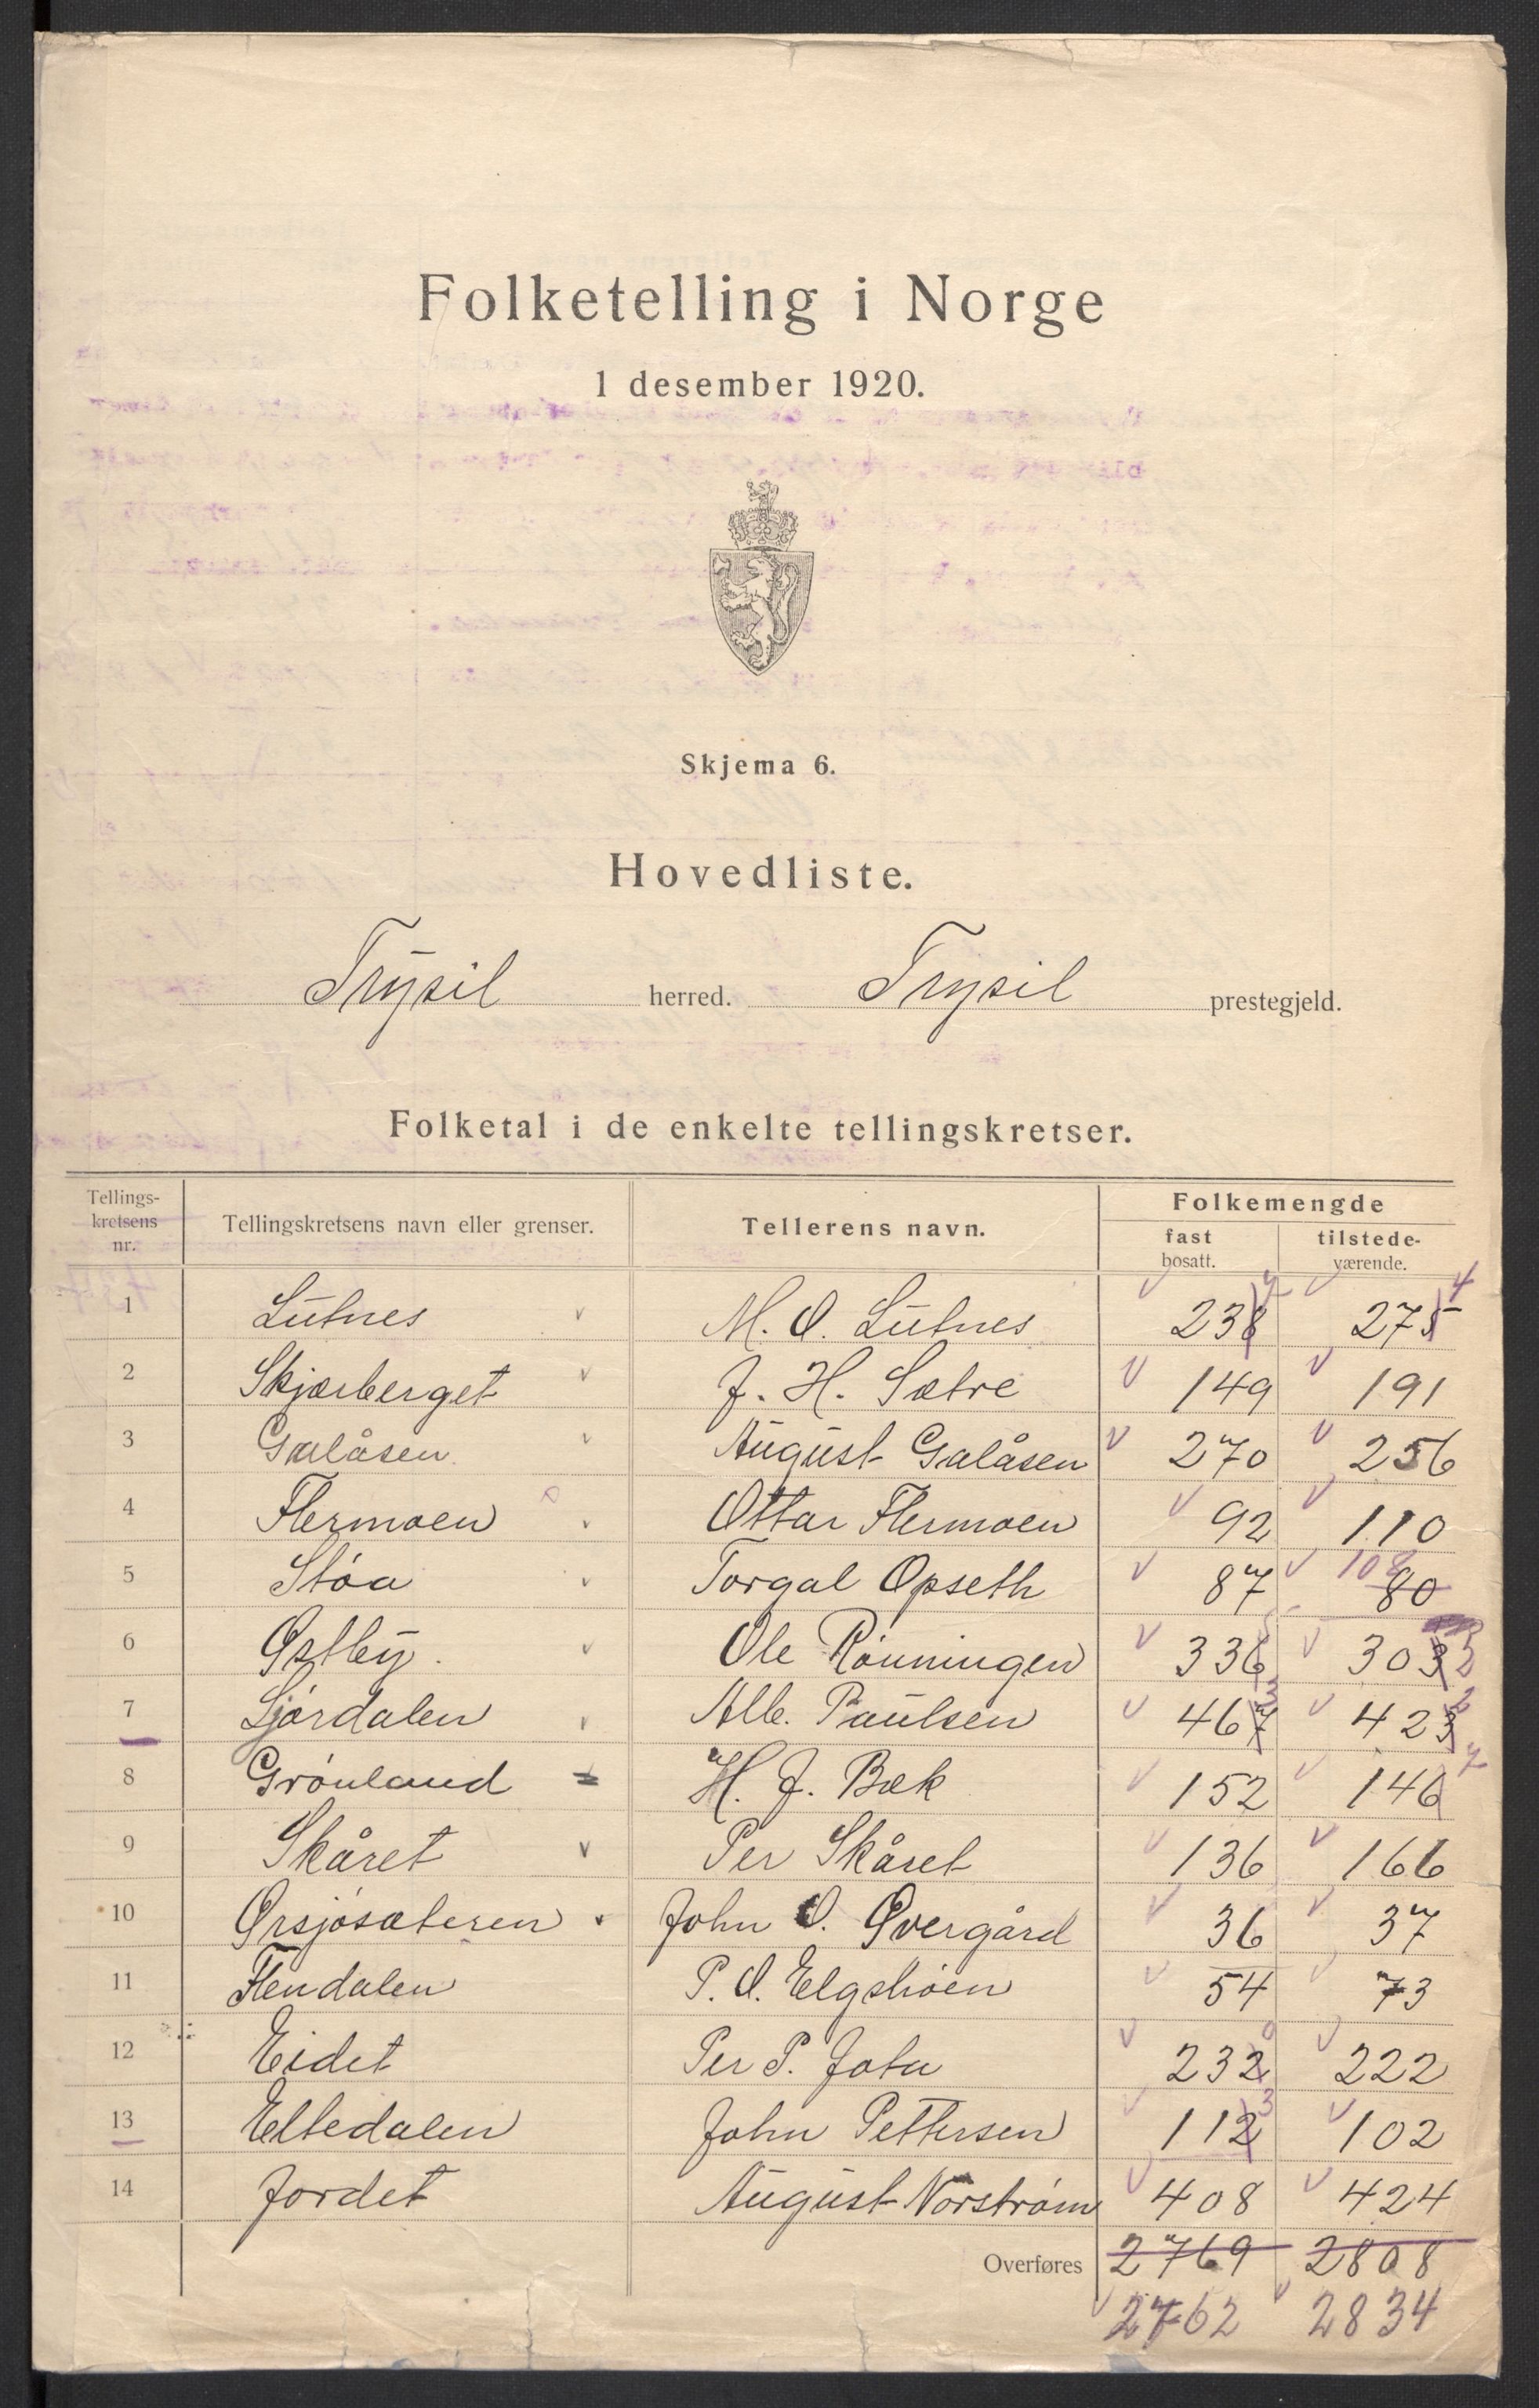 Folketelling i Norge
1 desember 1920.
Skjema 6.
Hovedliste.
Trysil herred. Trysil prestegjeld.
Folketal i de enkelte tellingskretser.
Tellings-kretsens nr. Tellingskretsens navn eller grenser. Tellerens navn. Folkemengde
fast bosatt. tilstede-værende.
1 Lutnes M. O. Lutnes 238 275 4
2 Skjærberget J. H. Sætre 149 191
3 Galåsen August Galåsen 270 256
4 Flermoen Ottar Flermoen 92 110
5 Støa Torgal Opseth 87 80 108
6 Østby. Ole Rønningen 336 303
7 Ljørdalen Alb. Paulsen 467 3 423 2
8 Grønland H. J. Bæk 152 146 7
9 Skåret Per Skåret 136 166
10 Ørsjøsæteren John O. Øvergård 36 37
11 Flendalen P. O. Elgshøen 54 73
12 Eidet Per P. 232 0 222
13 Eltedalen John Pettersen 112 3 102
14 Jordet August Norstrøm 408 424
Overføres 2769 2808
2762 2834